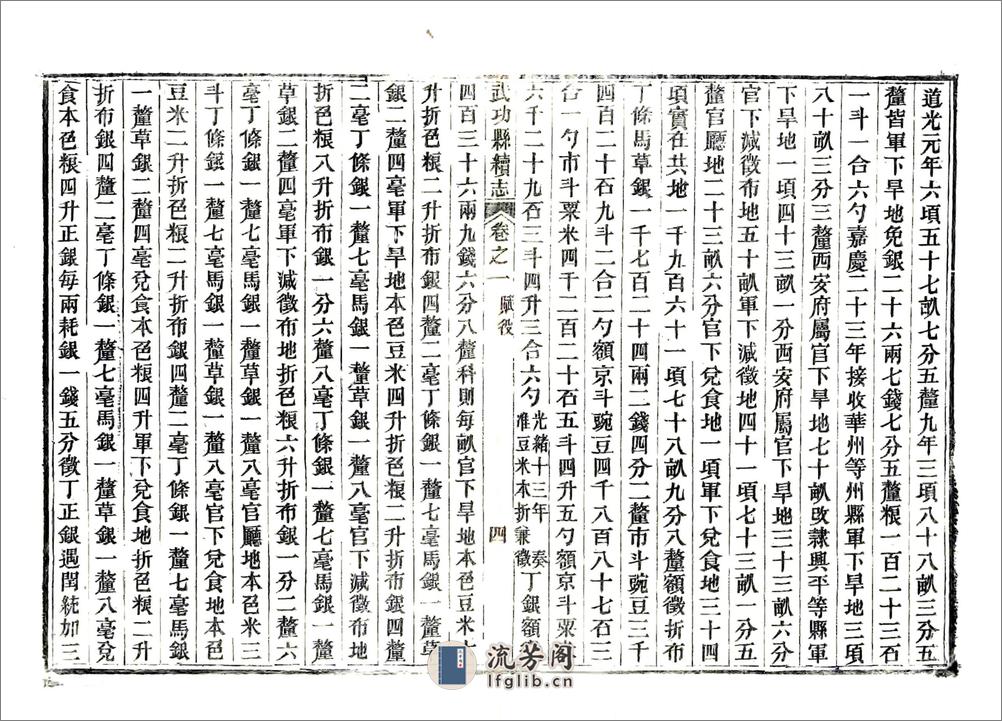 道光元年六頃五十七畝七分五釐九年三頃八十八畝三分五
釐皆軍下旱地免銀二十六兩七錢七分五釐粮一百二十三石
一斗一合六勺嘉慶二十三年接收華州等州縣軍下旱地三頃
八十畝三分三釐西安府屬官下旱地七十畝改隸興平等縣軍
下旱地一頃四十三畝一分西安府屬官下旱地三十三畝六分
官下減徵布地五十畝軍下減徵地四十一頃七十三畝一分五
釐官廳地二十三畝六分官下兌食地一項軍下兌食地三十四
項實在共地一千九百六十一項七十八畝九分八釐額徵折布
丁條馬草銀一千七百二十四兩二錢四分二釐市斗豌豆三千
四百二十石九斗二合二勺額京斗豌豆四千八百八十七石三
合一勺市斗粟米四千二百二十石五斗四升五勺額京斗粟米
六千二十九石三斗四升三合六勺光緒十三年奏准豆米本折兼徵丁銀額徵
武功縣續志 卷之一 賦役 四
四百三十六兩九錢六分八釐科則每畝官下旱地本色豆米六
升折色粮二升折布銀四釐二毫丁條銀一釐七毫馬銀一釐草
銀一釐四毫軍下旱地本色豆米四升折色粮二升折布銀四釐
二毫丁條銀一釐七毫馬銀一釐草銀一釐八毫官下減徵布地
折色粮八升折布銀一分六釐八毫丁條銀一釐七毫馬銀一釐
草銀二釐四毫軍下減徵布地折色粮六升折布銀一分二釐六
毫丁條銀一釐七毫馬銀一釐草銀一釐八毫官廳地本色米三
斗丁條銀一釐七毫馬銀一釐草銀一釐八毫官下兌食地本色
豆米二升折色粮二升折布銀四釐二毫丁條銀一釐七毫馬銀
一釐草銀一釐四毫兌食本色粮四升軍下兌食地折色粮二升
折布銀四釐二毫丁條銀一釐七毫馬銀一釐草銀一釐八毫兌
食本色粮四升正銀每兩耗銀一錢五分徵丁正銀遇閏統加三
流芳阁
lfglib.cn